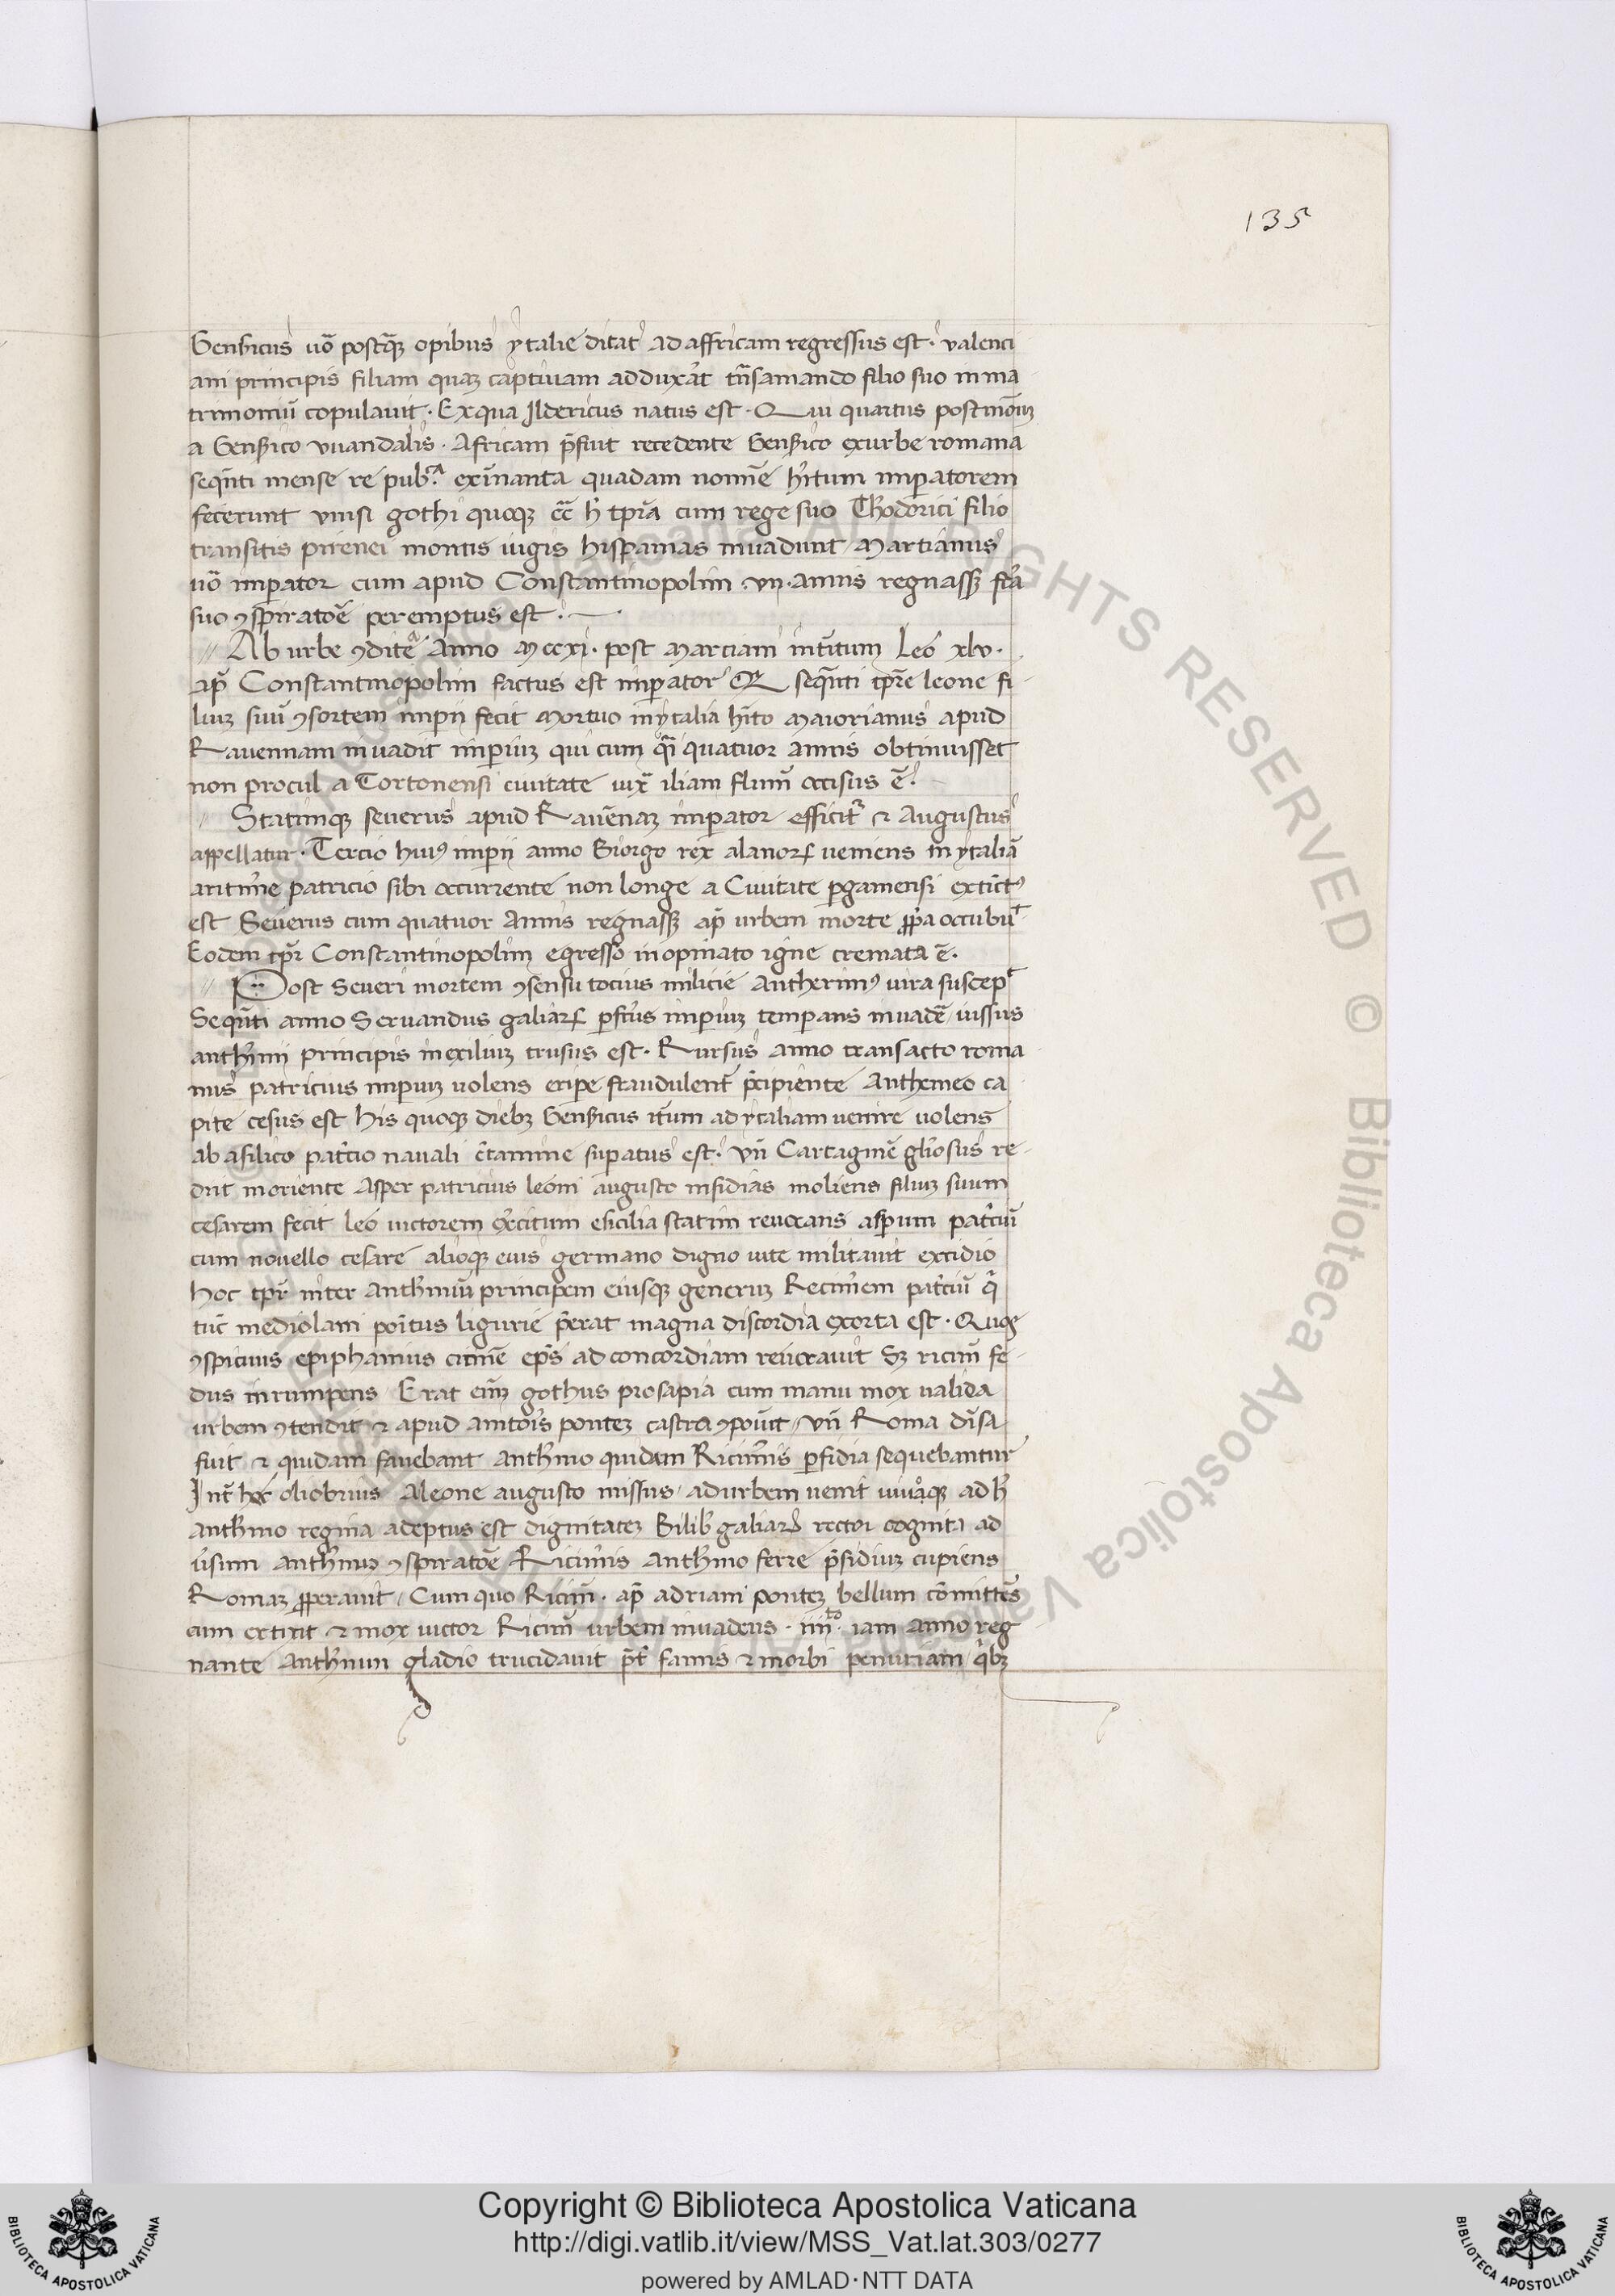 135
Gensicus uõ postq̃ȝ opibus ytalie ditat᾽ ad affricam regressus est · valenci
ani principis filiam quaȝ captivam adduxᷓat tñsamando filio suo in ma
trimoniũ copulavit · Ex qua Ildericus natus est · Qui quartus postmodum
a Gensico vuandalis · Africam p̃fuit recedente Gensico ex urbe romana
seq̃nti mense re pub.ᵃ exĩnanita quadam nomĩe hĩtum imperatorem
fecerunt visi gothi quoqȝ cc̃ h̃ tp̃ra cum rege suo Thodorici filio
transitis pirenei montis iugis hispanias invadunt / Martianus
uõ imperator cum apud Constantinopolim vii · annis regnassȝ
suo ꝯspiratoẽ peremptus est
// Ab urbe ꝯdite anno Mccxi · post Marciam Leo xlv ·
ap̃ Constantinopolim factus est imperator seq̃nti tp̃re leone fi
liuȝ suũ ꝯsortem imperii fecit Mortuo in ytalia hĩto Maiorianus apud
Ravennam invadit imperiuȝ qui cum quatuor annis obtinuisset
non procul a Tortonensi civitate iux̃ iliam flum̃ occisus ẽ
// Statimqȝ severus apud Ravẽnaȝ imperator efficit᷑ & Augustus
appellatur · Tercio huiꝰ imperii anno Giorgo rex alanoꝝ veniens in ytaliã
aritim̃e patricio sibi occurrente non longe a Civitate pergamensi extĩctꝰ
est Severus cum quatuor annis regnassȝ ap̃ urbem morte ꝓp̃a occubuᵗ
Eodem tp̃r Constantinopolim egresso inopinato igne cremata ẽ ·
// Post Severi mortem ꝯsensu tocius milicie Antherimꝰ iura suscepᵗ
Seq̃nti anno Servandus galiaꝝ p̃fctus imperiuȝ temperans invadẽ / iussus
anthimii principis in exiliuȝ trusus est · Rursus anno transacto roma
nus patricius imperiuȝ volens eripe fraudulent̃ p̃cipiente Anthemeo ca
pite cesus est his quoqȝ diebȝ Gensicus it̃um ad ytaliam venire volens
ab asilico pat᷑cio navali c̃tamine superatus est · vñ Cartaginẽ gliosus re
diit moriente Asper patricius leoni augusto insidias moliens filiuȝ suum
cesarem fecit leo victorem ex̃citum esicilia statim revocans asperum pat᷑ciũ
cum novello cesare alioqȝ eius germano digno vite militavit excidio
hoc tp̃r inter Anthimiũ principem eiusqȝ generuȝ Recim̃em pat᷑ciũ qⁱ
tũc mediolani positus ligurie p̃erat magna discordia exorta est · Quaȝ
ꝯspicuus epiphanius citinẽ ep̃s ad concordiam revocavit Sȝ ricim̃ fe
dus inrumpens Erat eniȝ gothus prosapia cum manu mox valida
urbem ꝯtendit & apud anitois ponteȝ castra ꝯpoũt / vñ Roma dĩsa
fuit & quidam favebant Anthimo quidam Ricim̃is perfidia sequebantur
Int̃ hec oliobrius a leone augusto missus / ad urbem venit vivoqȝ adh̃
anthimo regina adeptus est dignitateȝ Bilib̃ galiaꝝ rector cognita ad
ũsum anthimuȝ ꝯspiratoẽ Ricimis anthimo ferre p̃sidiuȝ cupiens
Romaȝ ꝓperavit / Cum quo Ricim̃ · ap̃ adriani ponteȝ bellum cõmittẽs
eum extixit & mox victor Ricim̃ urbem invadens · iiiiᵗᵒ iam anno reg
nante Anthimium gladio trucidavit p̃t̃ famis & morbi penuriam / qⁱbȝ
Copyright © Biblioteca Apostolica Vaticana
http://digi.vatlib.it/view/MSS_Vat.lat.303/0277
powered by AMLAD·NTT DATA
BIBLIOTECA APOSTOLICA VATICANA
BIBLIOTECA APOSTOLICA VATICANA